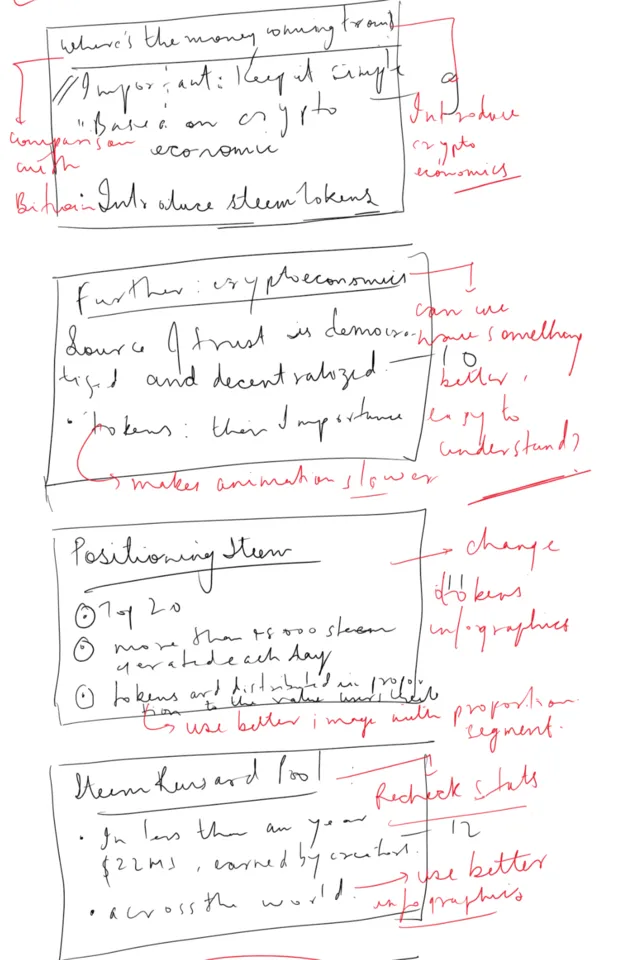 where's the money coming from
// Important: Keep it simple
9
"Based on crypto
Introduce
crypto
economics
economic
comparison
with
Bitcoin
• Introduce steem tokens
Further: cryptoeconomics
can we
have something
better,
easy to
understand?
Source of trust is democra-
tized and decentralized.
10
• tokens: their Importance
makes animation slower
Positioning Steem
change
tokens
infographics
11
Top 20
more than 000 steem
each day
tokens are distributed in propo-
tion to the value
use better image with proportion
segment.
Steem Reward Pool
Recheck stats
• In less than an year
12
$22MS, earned by creators.
• across the world.
use better
infographics